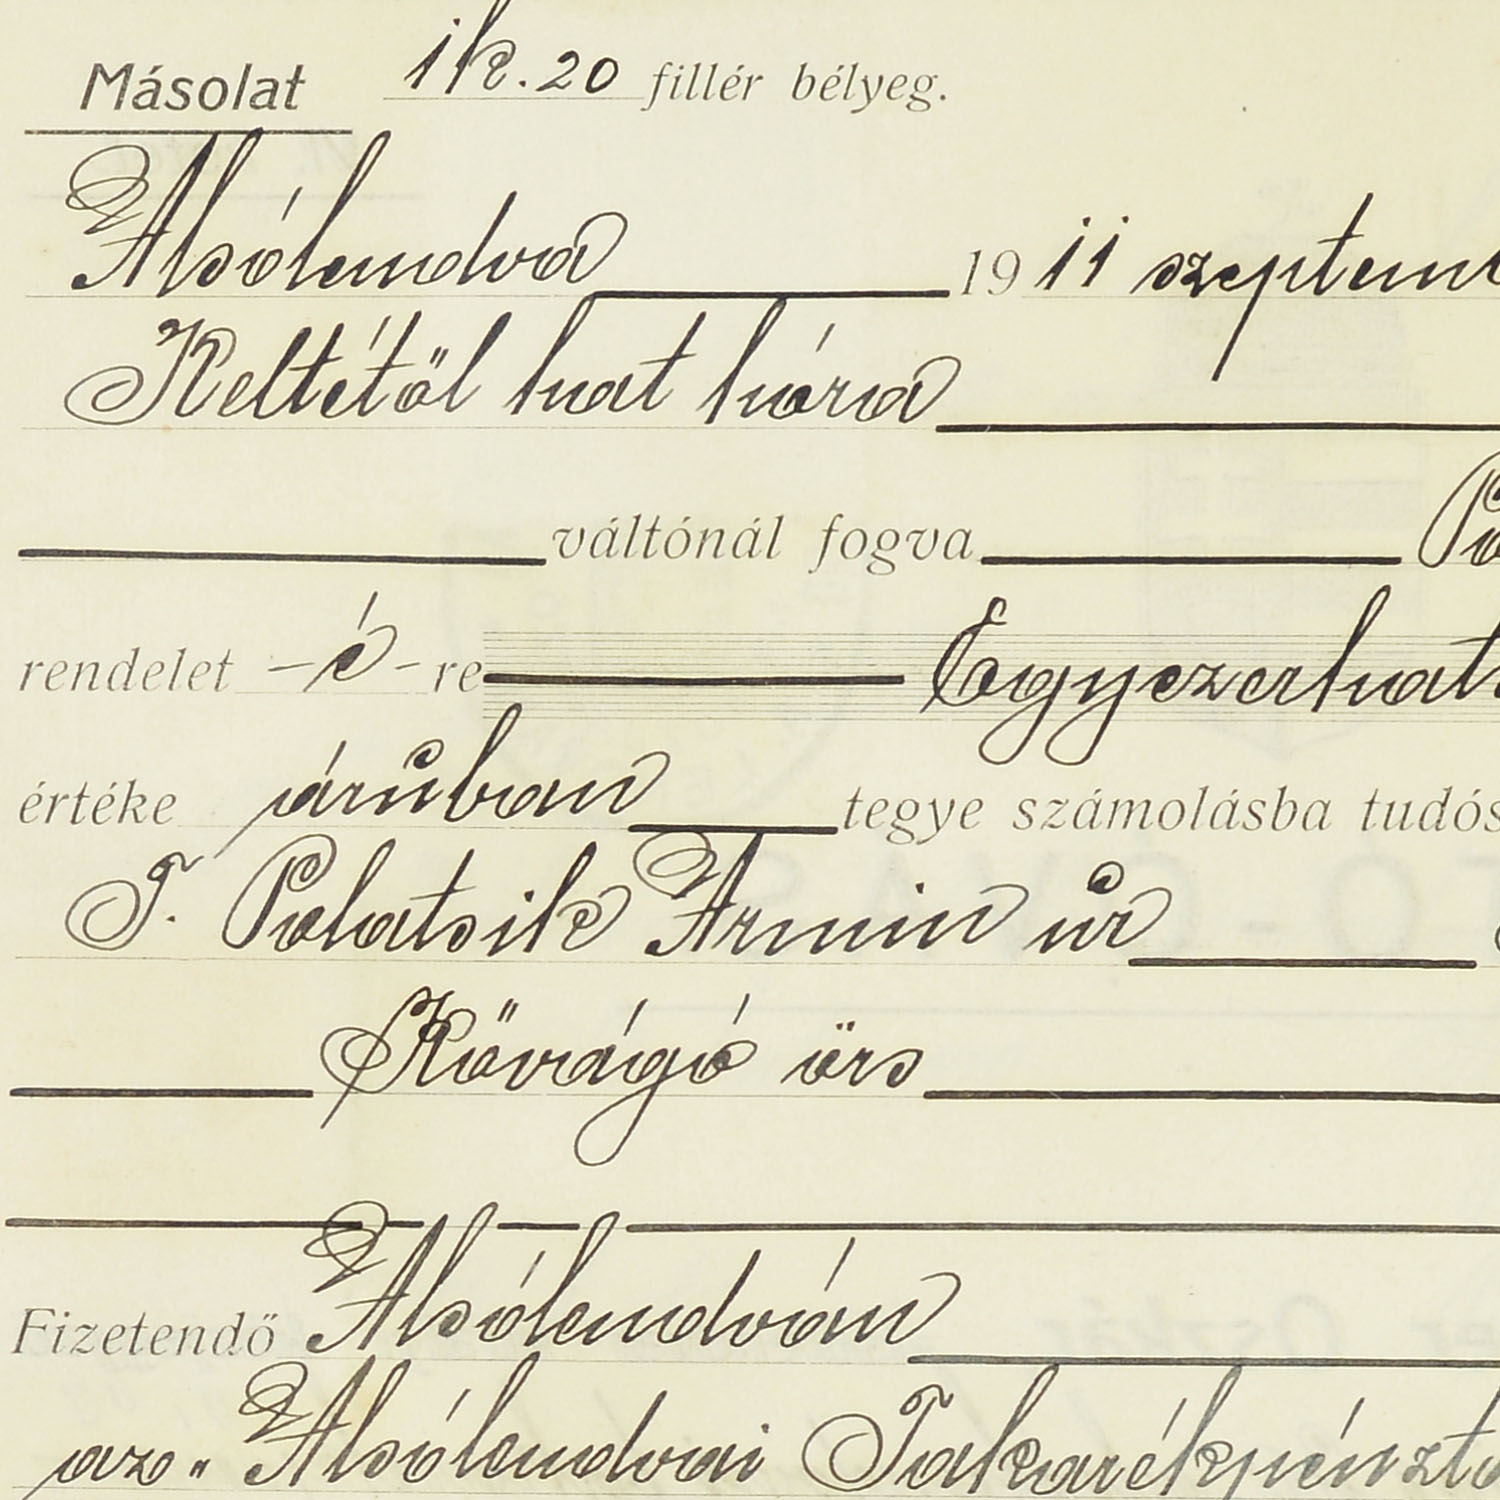 Másolat 1 k. 20 fillér bélyeg.
Alsólendva 1911 szeptem
Keltétől hat hóra
váltónál fogva
rendelet -é- re Egyezerhat
értéke áruban tegye számolásba tudós
T. Polatsik Ármin úr
Kővágó örs
Fizetendő Alsólendván
az „Alsólendvai Takarékpénzt